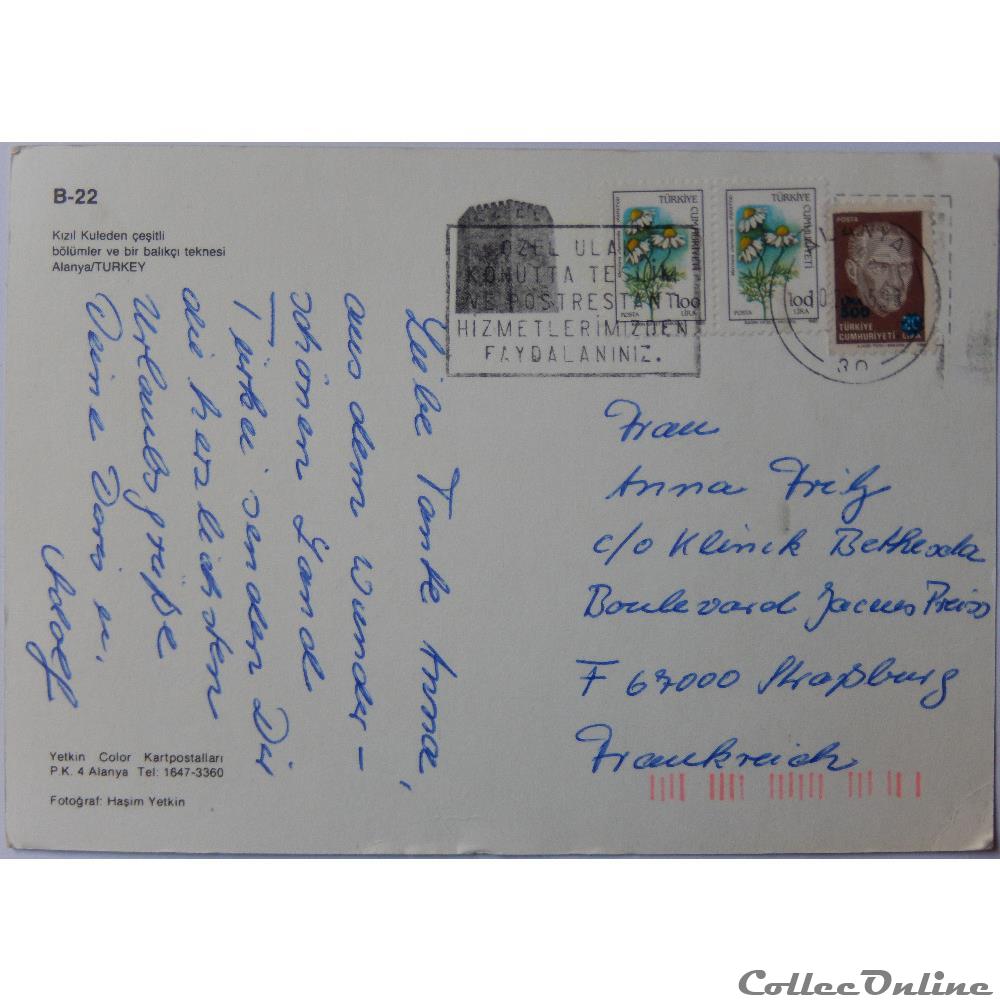 B-22
Kızıl Kuleden çeşitli
bölümler ve bir balıkçı teknesi
Alanya/TURKEY
ÖZEL ULAK
KONUTTA TESLİM
VE POSTRESTANT
HİZMETLERİMİZDEN
FAYDALANINIZ.
TÜRKİYE CUMHURİYETİ
100
POSTA LİRA
TÜRKİYE CUMHURİYETİ
100
POSTA LİRA
ALANYA
30
POSTA
LİRA
500
20
TÜRKİYE
CUMHURİYETİ LİRA
Liebe Tante Anna,
aus dem wunder-
schönen Lande
Türkei senden Dir
die herzlichsten
Urlaubsgrüße
Deine Doris u.
Adolf
Frau
Anna Fritz
c/o Klinick Bethesda
Boulevard Jacques Preiss
F 67000 Straßburg
Frankreich
Yetkin Color Kartpostalları
P.K. 4 Alanya Tel: 1647-3360
Fotoğraf: Haşim Yetkin
CollecOnline